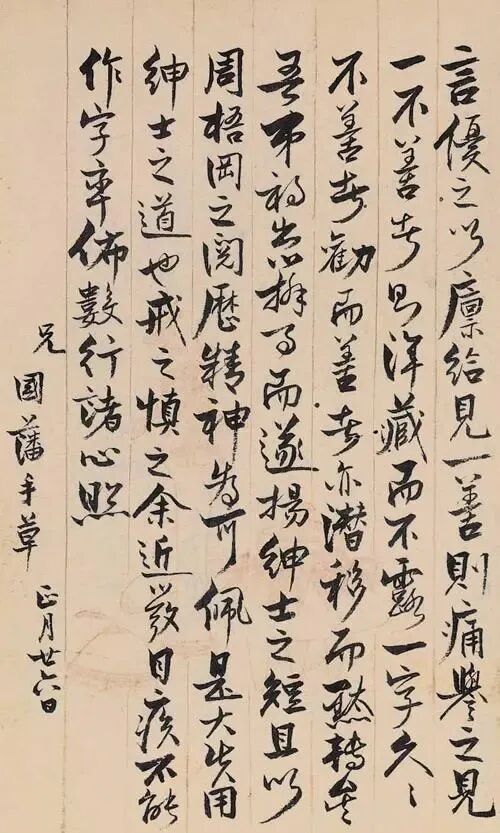 言優之以廩給見一善則痛譽之見
一不善者則渾藏而不露一字久〻
不善者勸而善者亦潛移而黙轉矣
吾弟初出辦事而遂揚紳士之短且以
周梧岡之閱歷精神為可佩是大失用
紳士之道也戒之慎之余近發目疾不能
作字率佈數行諸心照
兄國藩手草 正月廿六日